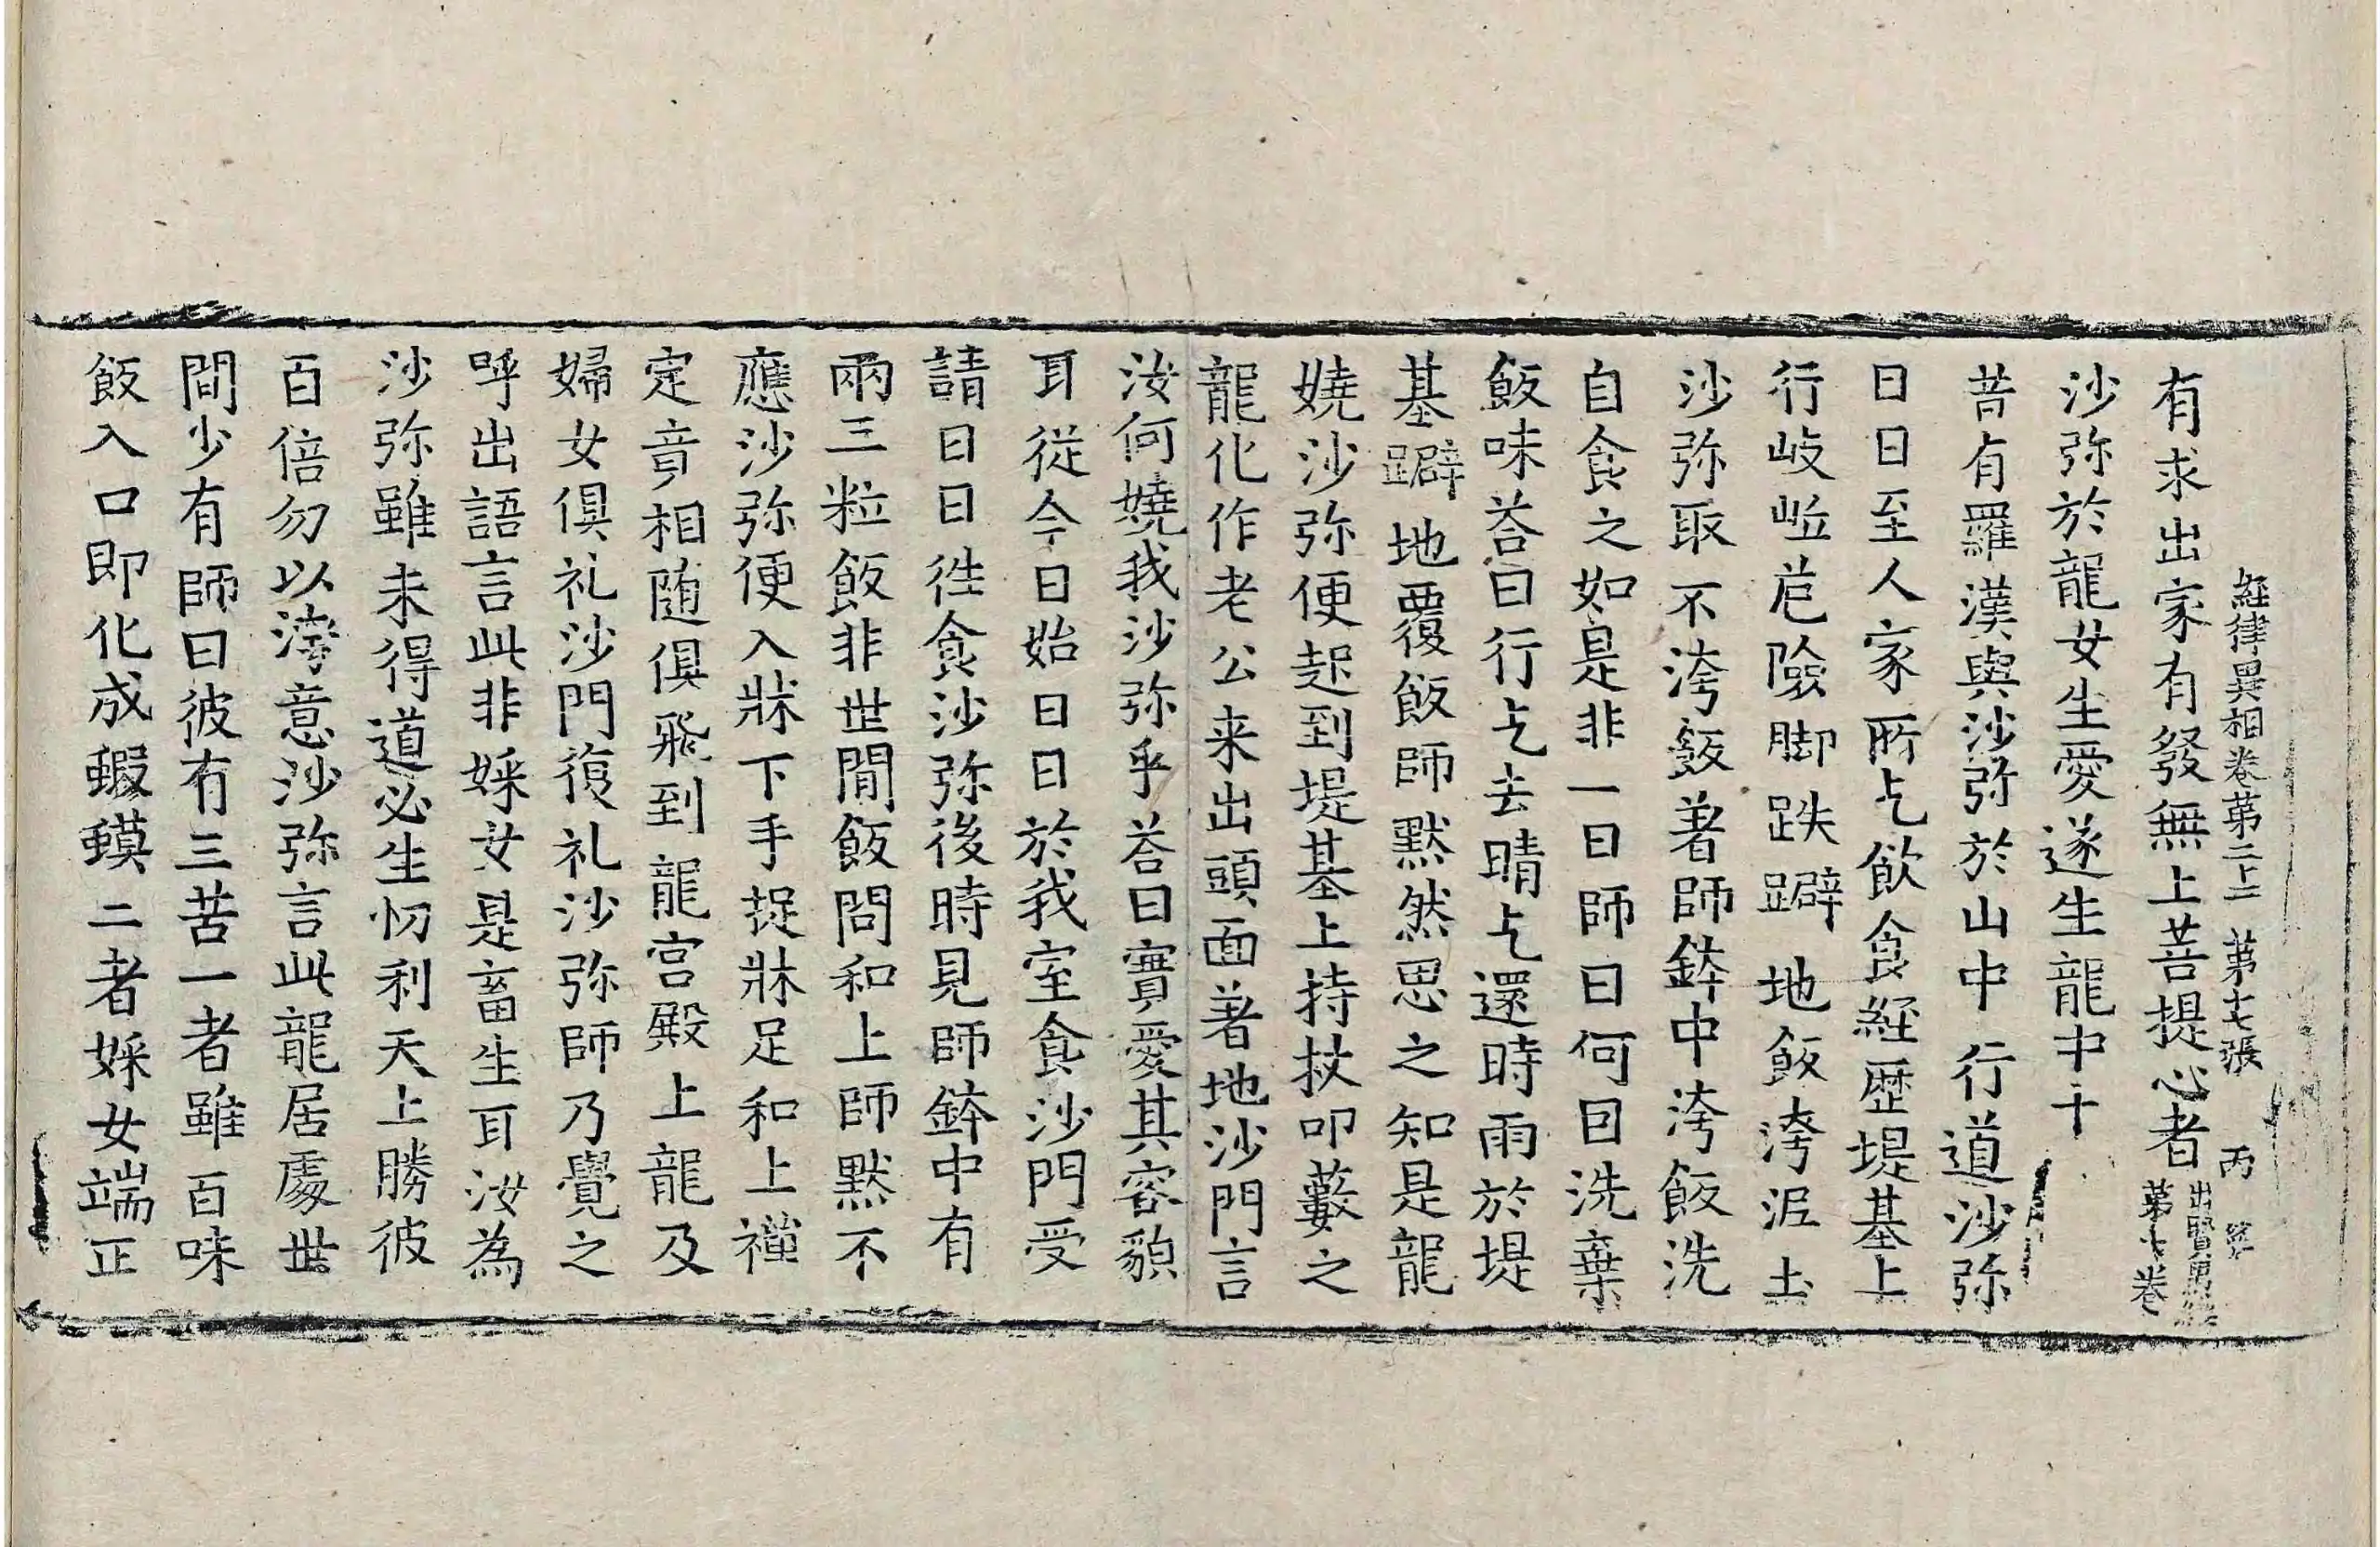 經律異相卷第二十二 第七張 丙
有求出家有發無上菩提心者 出賢愚經第七卷
沙弥於龍女生愛遂生龍中十
昔有羅漢與沙弥於山中行道沙弥
日日至人家所乞飲食経歷堤基上
行岐嶮危險脚跌躃地飯洿泥土
沙弥取不洿飯著師鉢中洿飯洗
自食之如是非一日師曰何因洗棄
飯味荅曰行乞去晴乞還時雨於堤
基躃地覆飯師黙然思之知是龍
嬈沙弥便起到堤基上持杖叩藪之
龍化作老公来出頭面著地沙門言
汝何嬈我沙弥乎荅曰實愛其容貌
耳従今日始日日於我室食沙門受
請日日徃食沙弥後時見師鉢中有
兩三粒飯非世間飯問和上師黙不
應沙弥便入牀下手捉牀足和上禪
定意相随俱飛到龍宮殿上龍及
婦女俱礼沙門復礼沙弥師乃覺之
呼出語言此非婇女是畜生耳汝為
沙弥雖未得道必生忉利天上勝彼
百倍勿以洿意沙弥言此龍居處世
間少有師曰彼有三苦一者雖百味
飯入口即化成蝦蟇二者婇女端正